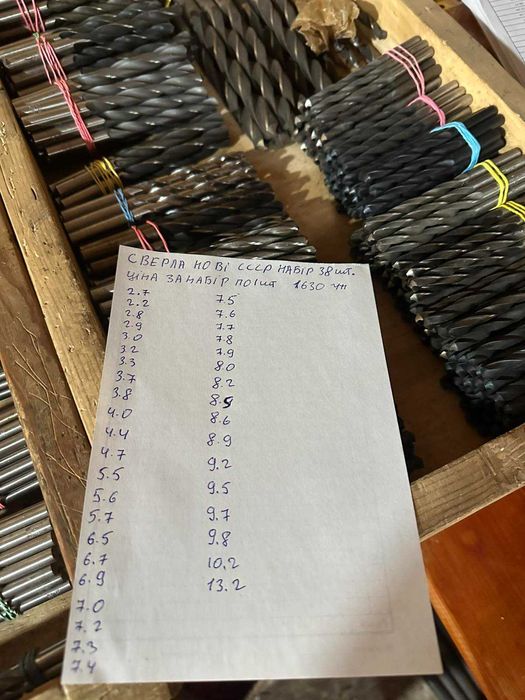 СВЕРЛА НОВІ СССР НАБІР 38 шт.
ЦІНА ЗА НАБІР ПО 1 шт 1630 грн
2.7
2.2
2.8
2.9
3.0
3.2
3.3
3.7
3.8
4.0
4.4
4.7
5.5
5.6
5.7
6.5
6.7
6.9
7.0
7.2
7.3
7.4
7.5
7.6
7.7
7.8
7.9
8.0
8.2
8.5
8.6
8.9
9.2
9.5
9.7
9.8
10.2
13.2